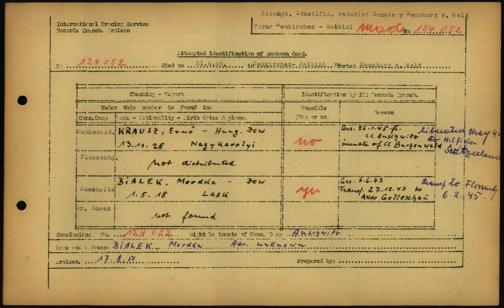 International Tracing Service
Records Branch, Arolsen
Attempt. Identific. reburied Cemetery Neunburg v. Wald
former Neukirchen - Balbini
No 124 052
Attempted identification of unknown dead.
ID 124052 died on 21.4.45. in Neukirchen-Balbini buried Neunburg v. Wald
Checking - Report
Identification by ITS Records Branch.
Under this number is found in:
Possible (Yes or no)
Reason
Conc.Camp Name - Nationality - Birth date & place.
Buchenwald. KRAUSZ, Ernö - Hung. Jew
13.10.28 Nagykarolyi
no
Arr. 26.1.45 fr.
CC Auschwitz
inmate of CC Buchenwald
Liberation May 45
to
Switzerland
Flossenbg.
not distributed
Auschwitz
BIALEK, Mordka - Jew
1.5.18 Lask
yes
Arr. 6.6.43
Transf. 27.12.43 to
Akdo Golleschau
transf. to Flossenbg
6.2.45
not found
Conclusion: No. 124 052 might be inmate of Conc. Camp Auschwitz
Name: BIALEK, Mordka Adr. unknown
Arolsen, 17.8.50
Prepared by: